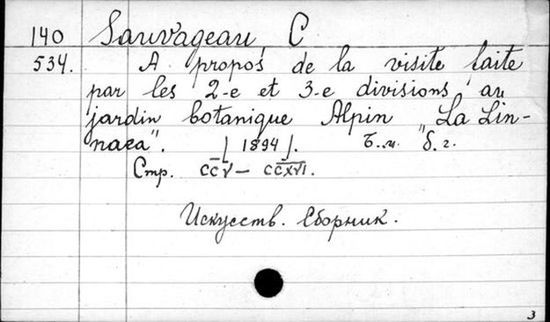 140 Sauvageau C
534. A propos de la visite faite
par les 2-e et 3-e divisions au
jardin botanique Alpin "La Lin-
naea". [1894]. Б.м. б.г.
Стр. CCV — CCXVI.
Искусств. Сборник.
3